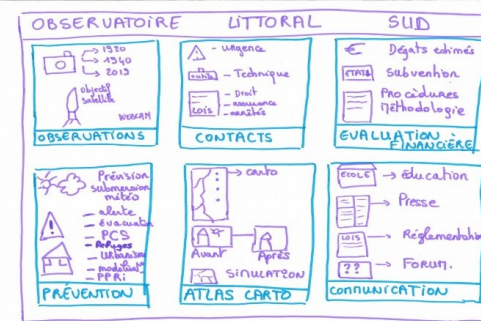 OBSERVATOIRE LITTORAL SUD
1920
1940
2019
Objectif
Satellite
WEBCAM
OBSERVATIONS
- urgence
outils - Technique
LOIS - Droit
- assurance
- arrêtés
CONTACTS
€ Dégats estimés
ETATS Subvention
Procédures
Méthodologie
EVALUATION
FINANCIÈRE
Prévision
submersion
météo
- alerte
- évacuation
- PCS
- Refuges
- Urbanisme
- PPRi
PRÉVENTION
carto
Avant Après
SIMULATION
ATLAS CARTO
ECOLE → éducation
→ Presse
LOIS → Réglementation
?? → FORUM.
COMMUNICATION